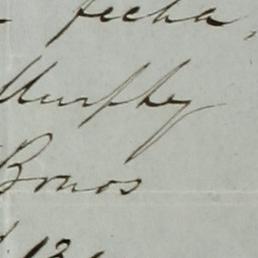 fecha,
Murphy
Bonos